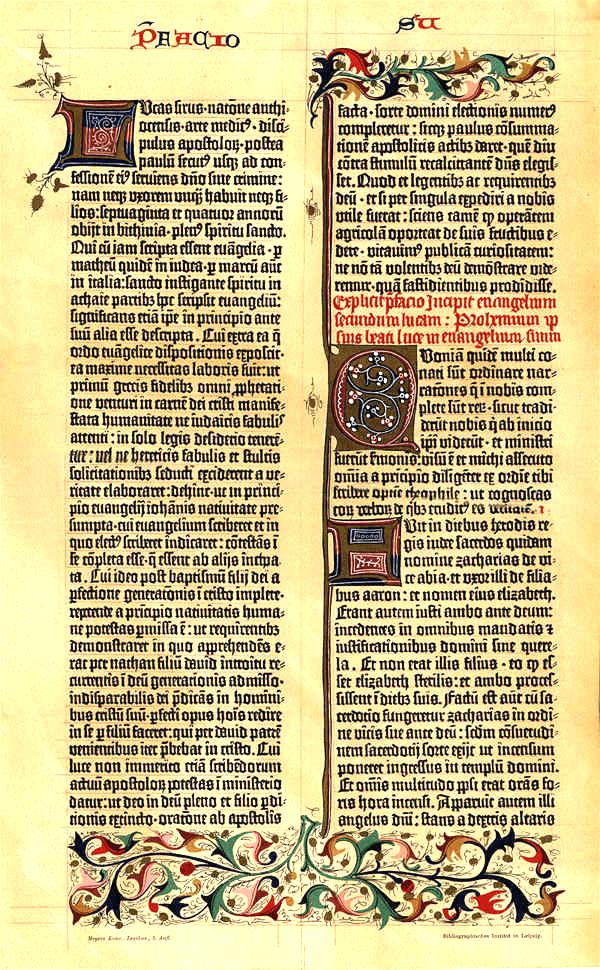 P̄FACIO
SU
Lucas sirus· natōne anthi-
ocensis· arte medic⁹· disci-
pulus apostoloꝝ· postea
paulū secut⁹ usqꝫ ad con-
fessionē ei⁹ serviens dn̄o sine crimine:
nam neqꝫ uxorem unqͫ habuit neqꝫ fi-
lios: septuaginta et quatuor annorū
obijt in bithinia· plen⁹ spiritu sancto.
Qui cū iam scripta essent euāgelia· ꝑ
matheū quidē in iudea· ꝑ marcū aūt
in italia: sancto instigante spiritu in
achaie partibꝫ hoc scripsit euangeliū:
significans etiā ipē in principio ante
suū alia esse descripta. Cui extra ea q̄
ordo euāgelice dispositionis exposcit·
ea maxime necessitas laboris fuit: ut
primū grecis fidelibꝫ omni ꝓphetati-
one venturi in carnē dei cristi manife-
stata humanitate ne iudaicis fabulis
attenti: in solo legis desiderio tenerē-
tur: vel ne hereticis fabulis et stultis
solicitationibꝫ seducti exciderent a ve-
ritate elaboraret: dehinc· ut in princi-
pio euangelij iohānis nativitate pre-
sumpta· cui euangelium scriberet et in
quo elect⁹ scriberet indicaret: cōtestās ī
se cōpleta esse· q̄ essent ab alijs incepta
ta. Cui ideo post baptismū filij dei a
ꝑfectione generationis ī cristo implete·
repetende a principio nativitatis huma-
ne potestas ꝑmissa ē: ut requirentibꝫ
demonstraret in quo apprehendēs e-
rat per nathan filiū david introitu re-
currentis ī deū generationis admisso·
indisparabilis dei p̄dicās in homini-
bus cristū suū· ꝑfecti opus hoīs redire
in se ꝑ filiū faceret: qui per david patrē
venientibus iter p̄bebat in cristo. Cui
luce non immerito etiā scribēdorum
actuū apostoloꝝ potestas ī ministerio
datur: ut deo in deū pleno et filio ꝓdi-
tionis extincto· oratōne ab apostolis
facta· sorte domini electionis numer⁹
compleretur: sicqꝫ paulus cōsumma-
tionē apostolicis actibꝫ daret· quē diu
cōtra stimulū recalcitrantē dn̄s elegis-
set. Quod et legentibꝫ ac requirentibꝫ
deū· et si per singula expediri a nobis
utile fuerat: sciens tamē ꝙ operātem
agricolā oporteat de suis fructibus e-
dere· vitavim⁹ publicā curiositatem:
ne nō tā volentibꝫ deū demōstrare vide-
remur· quā fastidientibus prodidisse.
Explicit p̄facio Incipit evangelium
secundum lucam: Prohemium ip
sius beati luce in evangelium suum
Quoniā quidē multi co-
nati sūt ordinare nar-
rationes q̄ ī nobis com-
plete sūt reꝝ· sicut tradi-
derūt nobis q̄ ab inicio
ip̄i viderūt· et ministri
fuerūt ẜmonis: visū ē et michi assecuto
omnia a principio diligēter ex ordīe tibi
scribere optīe theophile: ut cognoscas
eoꝝ verboꝝ de qͥbꝫ eruditꝰ es veritatē. I
Fuit in diebus herodis re-
gis iudee sacerdos quidam
nomine zacharias de vi-
ce abia· et uxor illi de filia-
bus aaron: et nomen eius elizabeth.
Erant autem iusti ambo ante deum:
incedentes in omnibus mandatis ⁊
iustificationibus domini sine quere-
la. Et non erat illis filius· eo ꝙ es-
set elizabeth sterilis: et ambo proces-
sissent ī diebꝫ suis. Factū est aūt cū sa-
cerdotio fungeretur zacharias in ordi-
ne vicis sue ante deū: scd̄m cōsuetudi-
nem sacerdotij sorte exijt ut incensum
poneret ingressus in templū domini.
Et om̄is multitudo ppl̄i erat orās fo-
ris hora incensi. Apparuit autem illi
angelus dn̄i: stans a dextris altaris
Meyers Konv.-Lexikon, 5. Aufl.
Bibliographisches Institut in Leipzig.